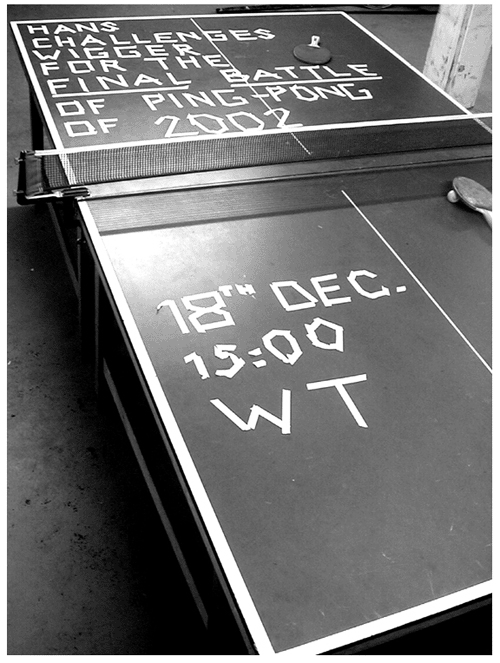 HANS
CHALLENGES
WIGGER
FOR THE
FINAL BATTLE
OF PING-PONG
OF 2002
18TH DEC.
15:00
WT